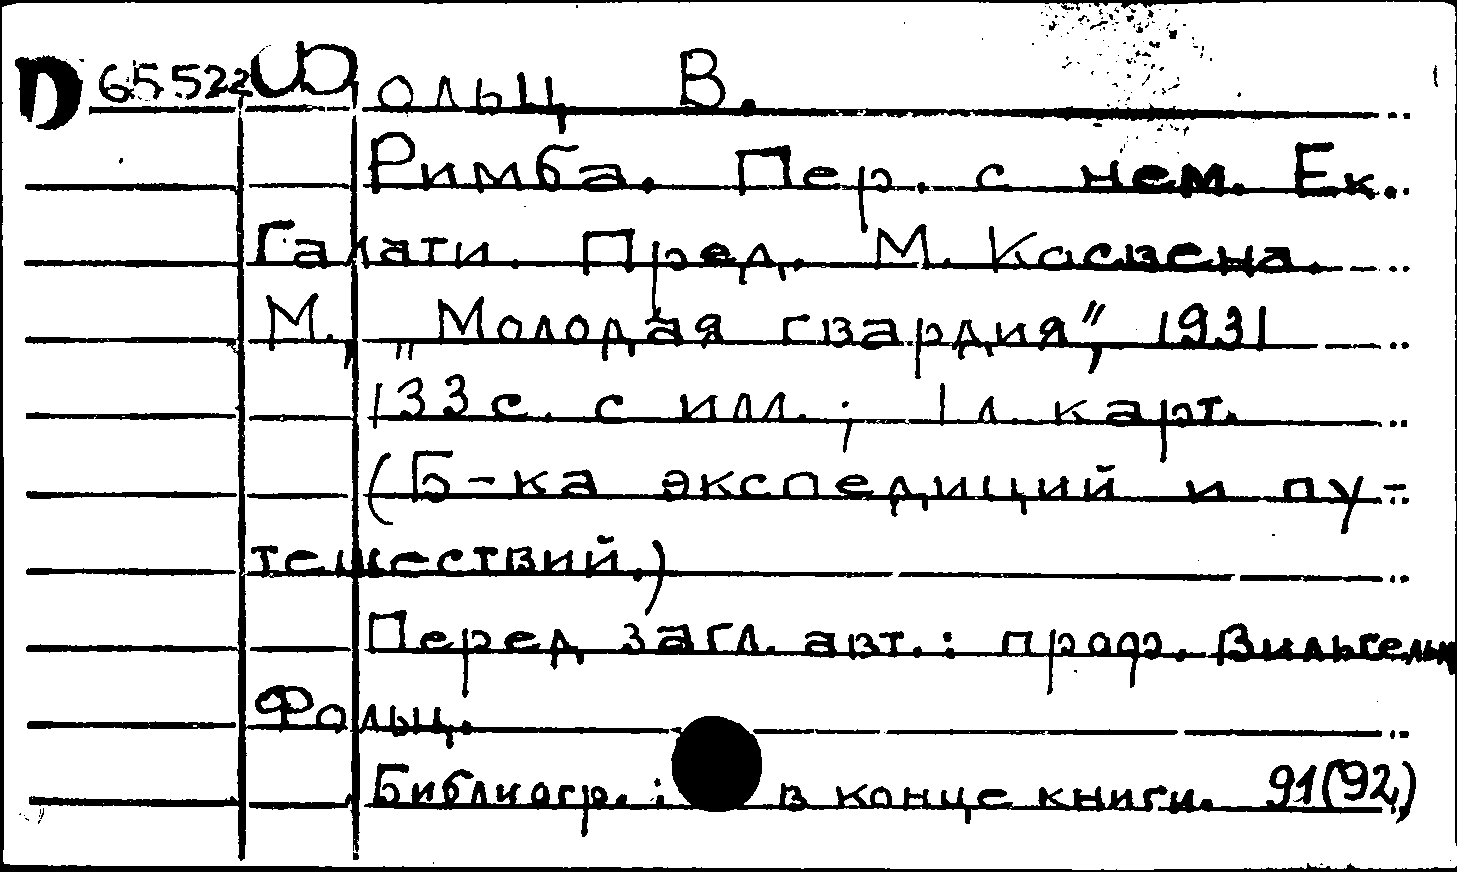 D 65522 Фольц В.
Римба. Пер. с нем. Ек.
Галати. Пред. М. Косвена.
М., „Молодая гвардия", 1931
133 с. с илл.; 1 л. карт.
(Б-ка экспедиций и пу-
тешествий.)
Перед загл. авт.: проф. Вильгельм
Фольц.
Библиогр.: в конце книги. 91(92)